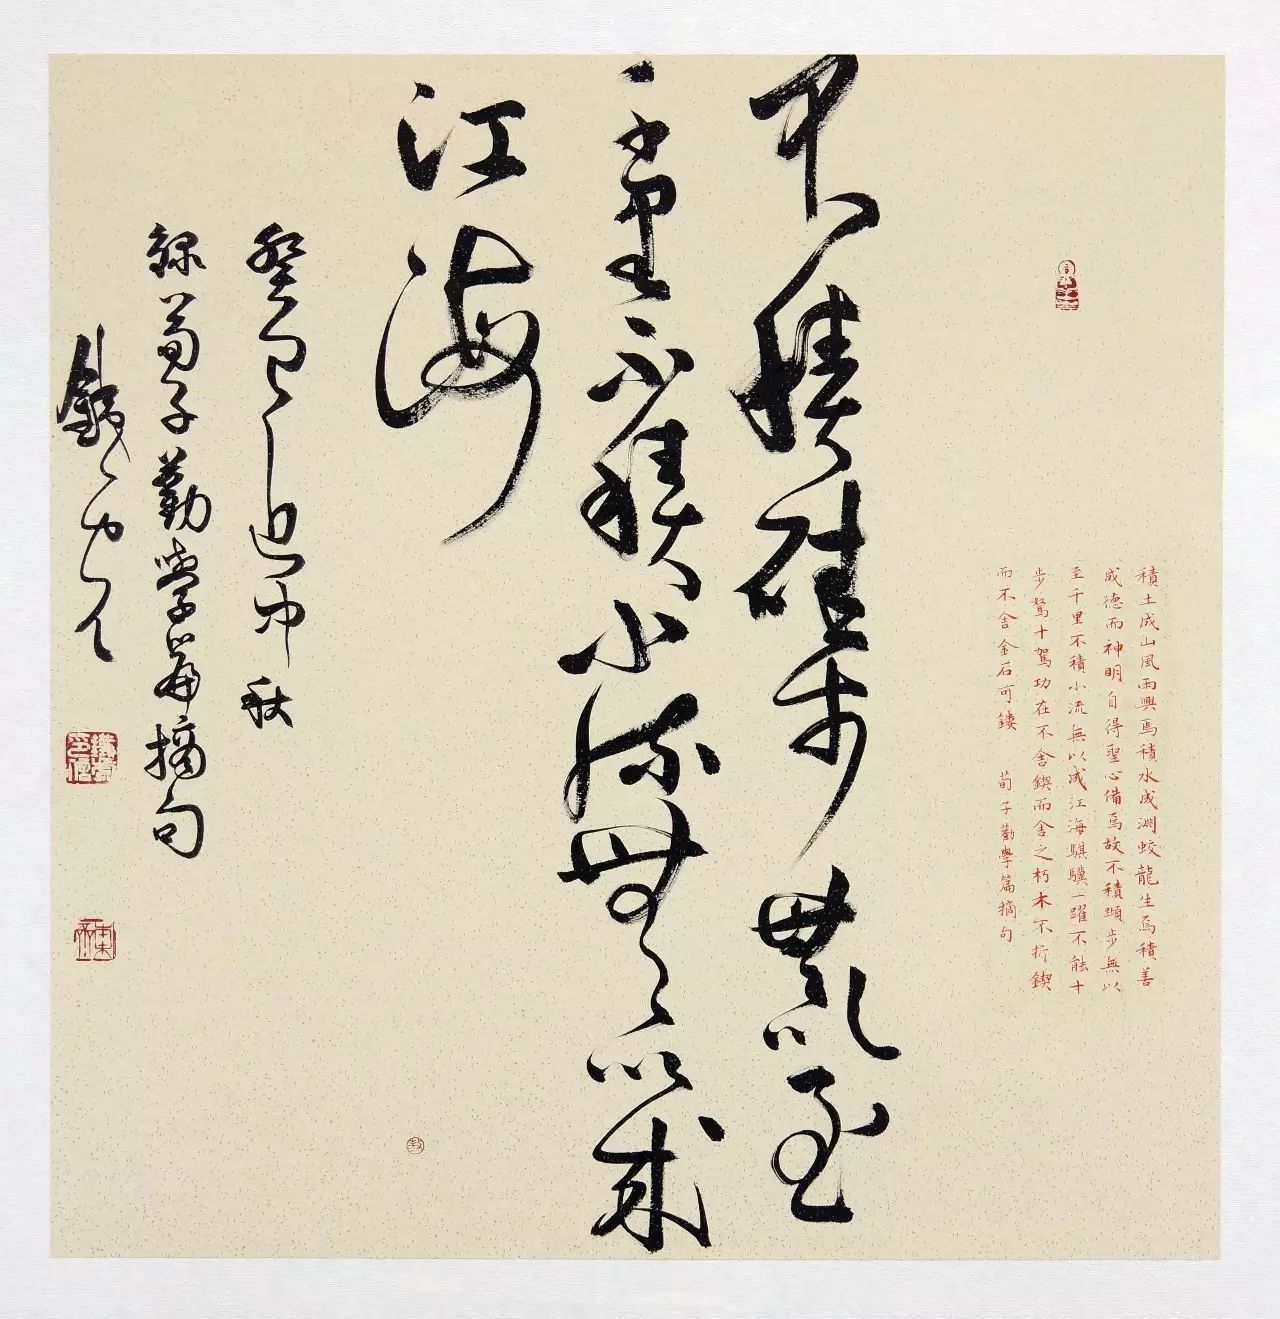 積土成山風雨興焉積水成淵蛟龍生焉積善
成德而神明自得聖心備焉故不積蹞步無以
至千里不積小流無以成江海騏驥一躍不能十
步駑十駕功在不舍鍥而舍之朽木不折鍥
而不舍金石可鏤 荀子勸學篇摘句
不積跬步無以至
千里不積小流無以成
江海
癸巳中秋
錄荀子勸學篇摘句